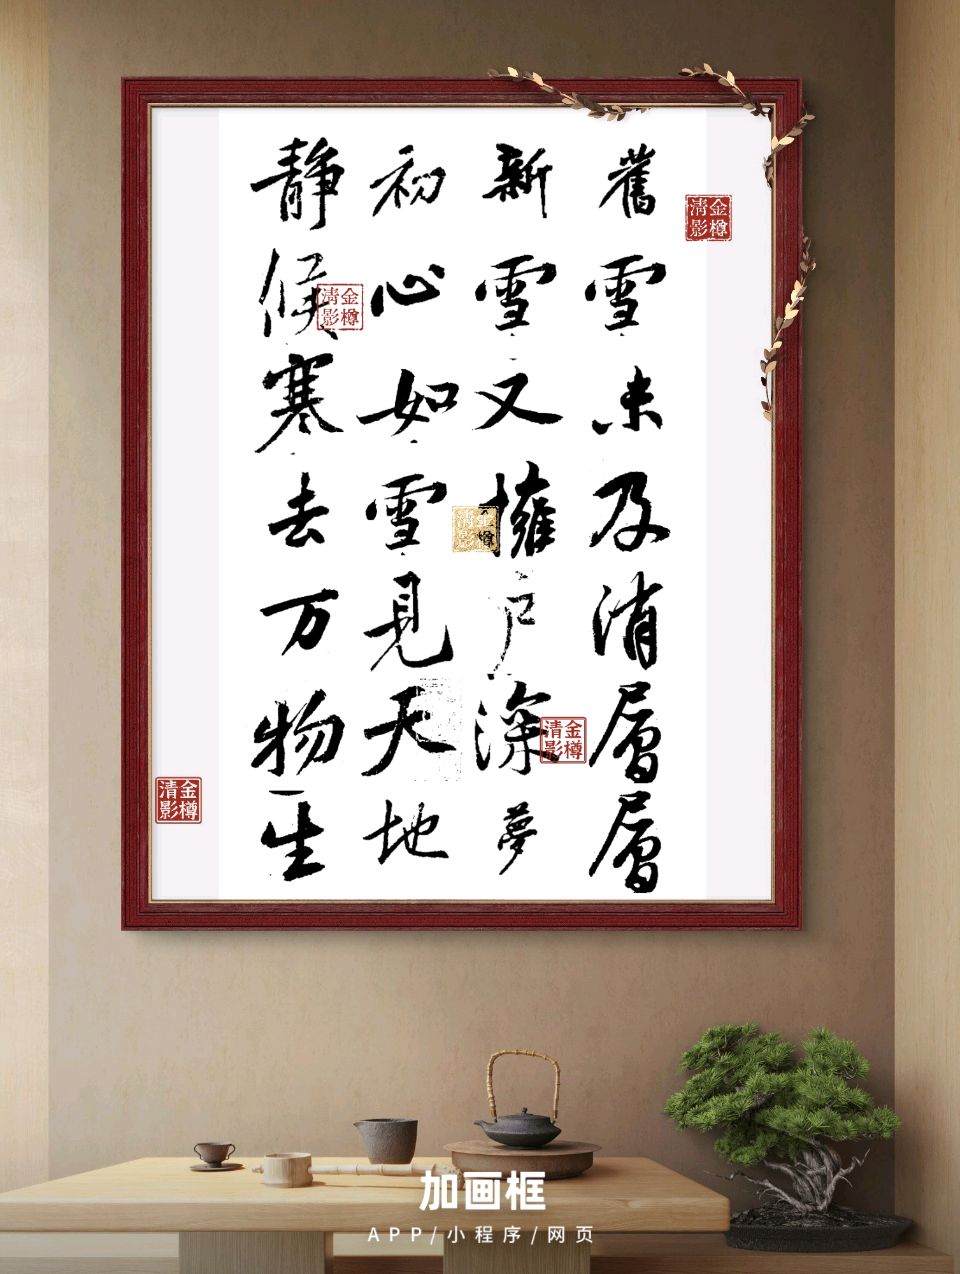 舊雪未及消層層
新雪又擁戶深夢
初心如雪見天地
靜候寒去万物生
金樽清影
金樽清影
金樽清影
金樽清影
金樽清影
加画框
APP/小程序/网页